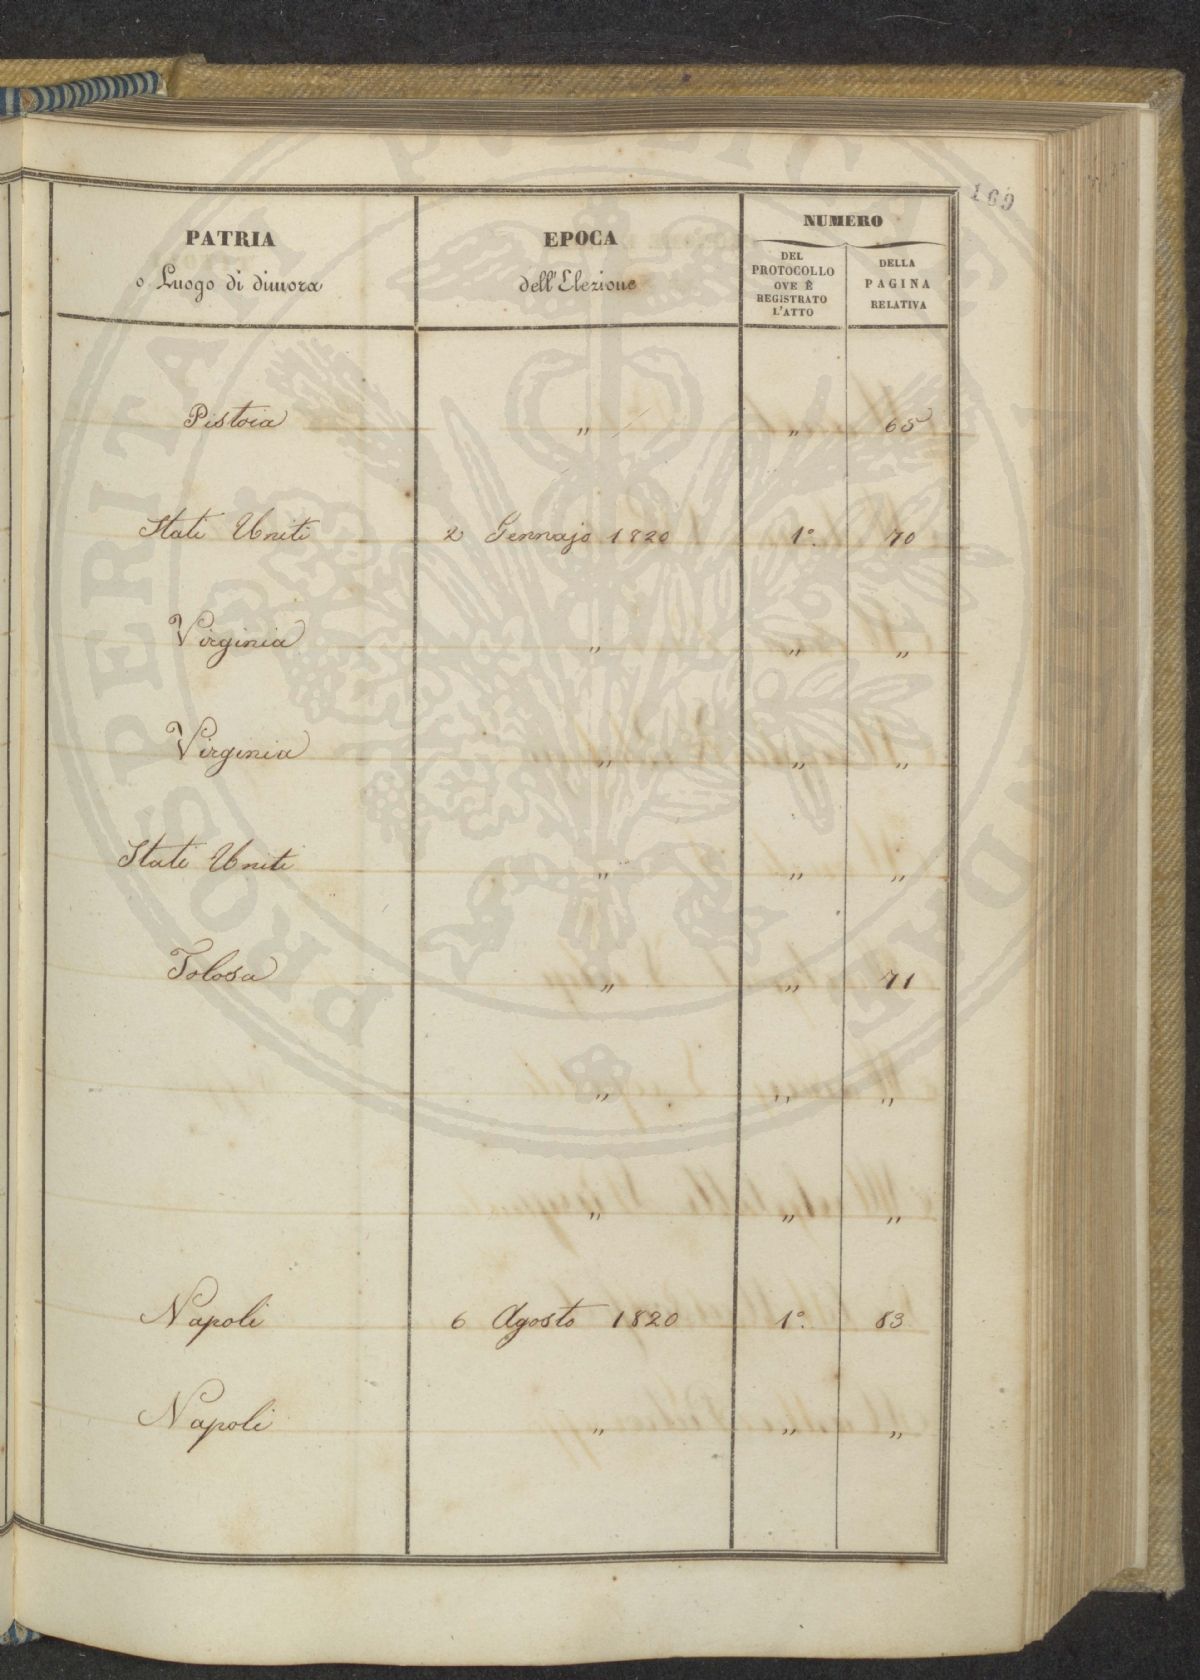 169
PATRIA
o Luogo di dimora
EPOCA
dell'Elezione
NUMERO
DEL
PROTOCOLLO
OVE È
REGISTRATO
L'ATTO
DELLA
PAGINA
RELATIVA
Pistoia " " 65
Stati Uniti 2 Gennajo 1820 1º. 70
Virginia " " "
Virginia " " "
Stati Uniti " " "
Tolosa " " 71
" " "
" " "
Napoli 6 Agosto 1820 1º. 83
Napoli " " "
PROSPERITAS PUBLICAE